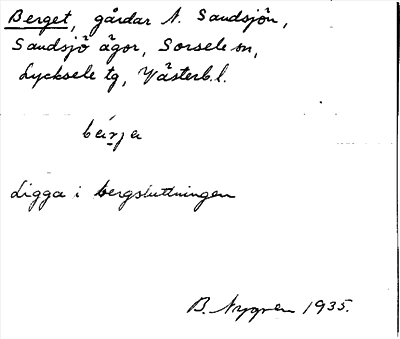 Berget, gårdar N. Sandsjön,
Sandsjö ägor, Sorsele sn,
Lycksele tg, Västerb. l.
bárja
Ligga i bergsluttningen
B. Nygren 1935.